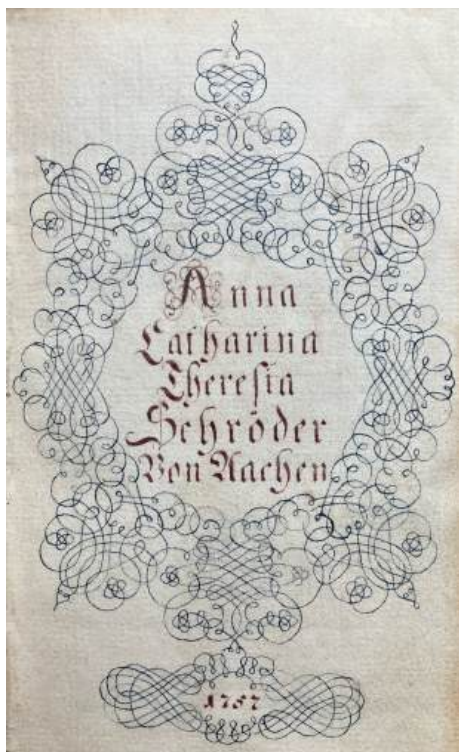 Anna
Catharina
Theresia
Schröder
Von Aachen
1757